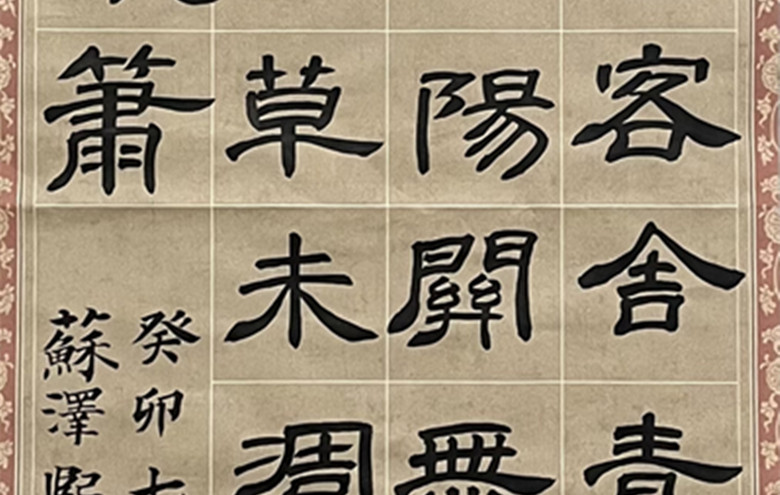 客舍青
陽關無
草未凋
簫
癸卯
蘇澤熙